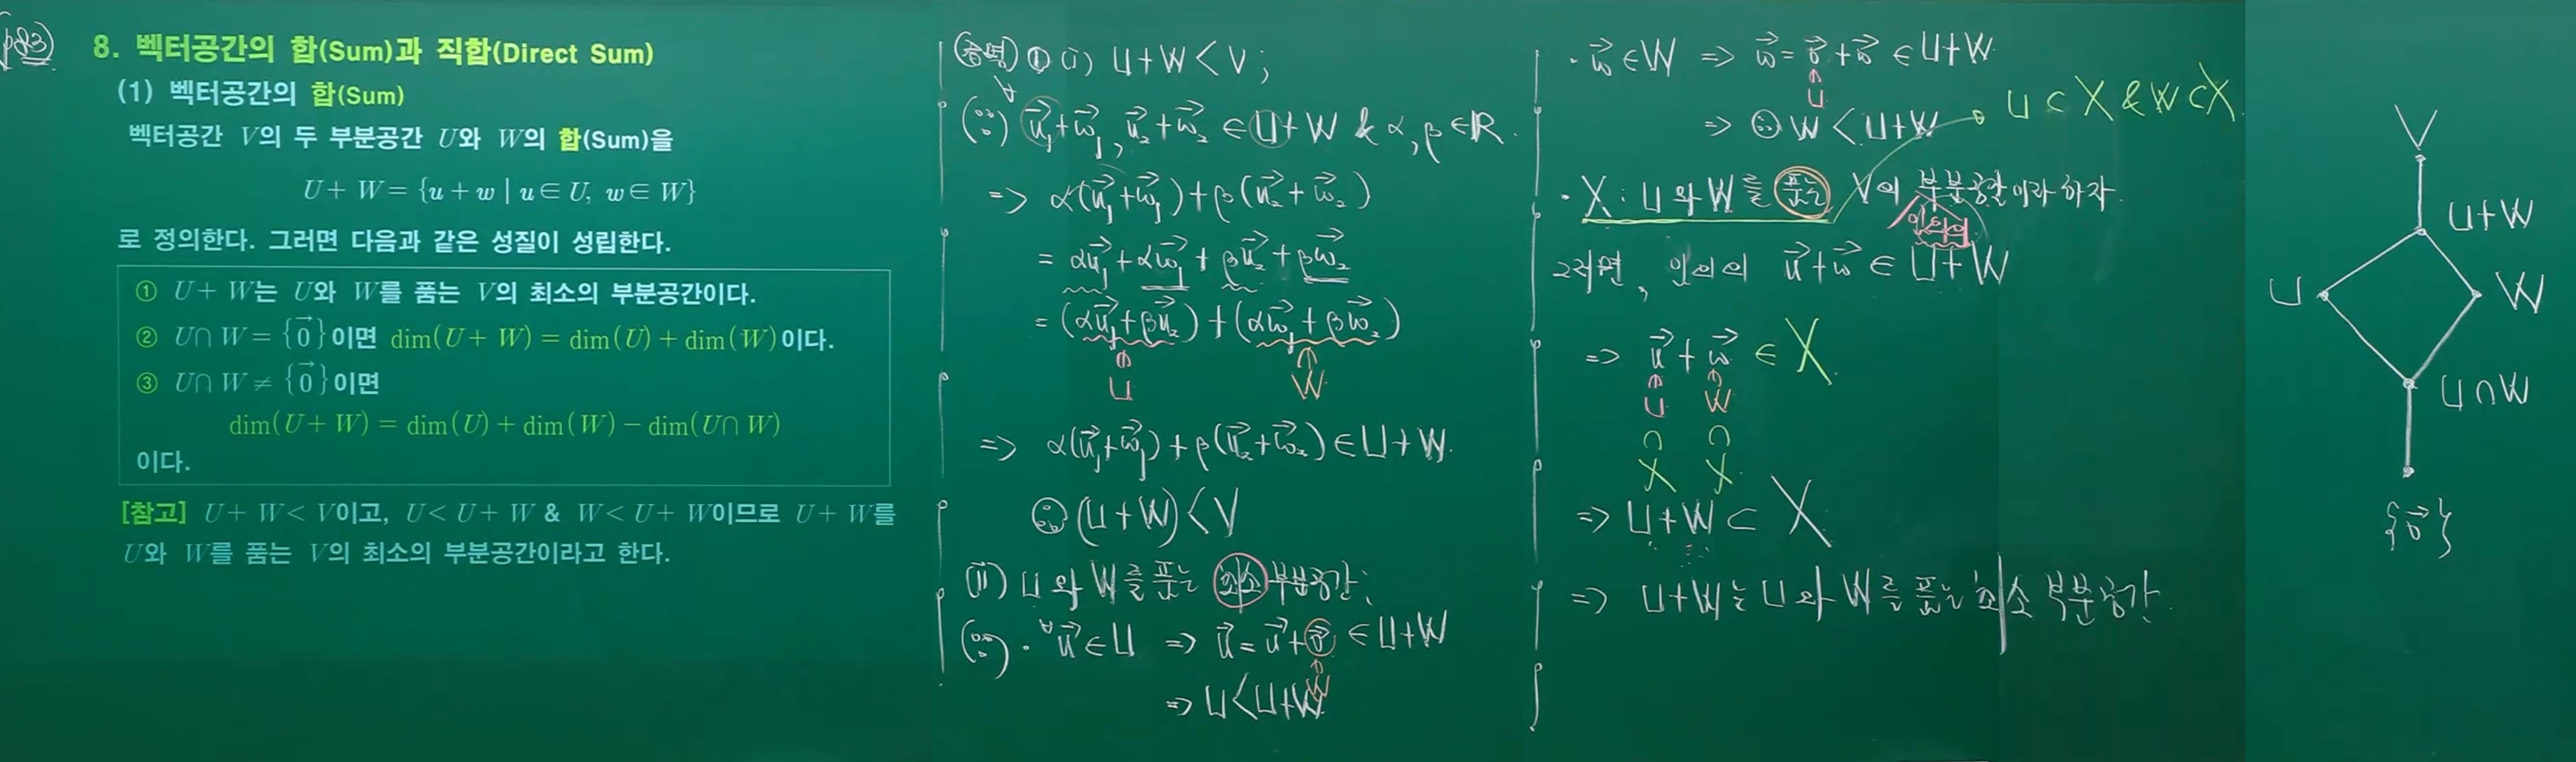 p83
8. 벡터공간의 합(Sum)과 직합(Direct Sum)
(1) 벡터공간의 합(Sum)
벡터공간 V의 두 부분공간 U와 W의 합(Sum)을
U+W={u+w | u∈U, w∈W}
로 정의한다. 그러면 다음과 같은 성질이 성립한다.
① U+W는 U와 W를 품는 V의 최소의 부분공간이다.
② U∩W={0⃗}이면 dim(U+W)=dim(U)+dim(W)이다.
③ U∩W≠{0⃗}이면
dim(U+W)=dim(U)+dim(W)−dim(U∩W)
이다.
[참고] U+W<V이고, U<U+W & W<U+W이므로 U+W를
U와 W를 품는 V의 최소의 부분공간이라고 한다.
(증명) ① (i) U+W<V ;
(∵) ∀u⃗₁+w⃗₁, u⃗₂+w⃗₂ ∈ U+W & α, β∈R.
⇒ α(u⃗₁+w⃗₁)+β(u⃗₂+w⃗₂)
= αu⃗₁+αw⃗₁+βu⃗₂+βw⃗₂
= (αu⃗₁+βu⃗₂)+(αw⃗₁+βw⃗₂)
U W
⇒ α(u⃗₁+w⃗₁)+β(u⃗₂+w⃗₂)∈U+W.
∴ (U+W)<V
(ii) U와 W를 품는 최소 부분공간;
(∵) · ∀u⃗∈U ⇒ u⃗=u⃗+0⃗ ∈U+W
W
⇒ U<U+W
· w⃗∈W ⇒ w⃗=0⃗+w⃗ ∈U+W
U
⇒ ∴ W<U+W
U⊂X & W⊂X.
· X : U와 W를 품는 V의 부분공간이라 하자.
임의의
그러면, 임의의 u⃗+w⃗ ∈ U+W
⇒ u⃗+w⃗ ∈ X
U W
∩ ∩
X X
⇒ U+W ⊂ X
⇒ U+W는 U와 W를 품는 최소 부분공간.
V
U+W
U W
U∩W
{0⃗}